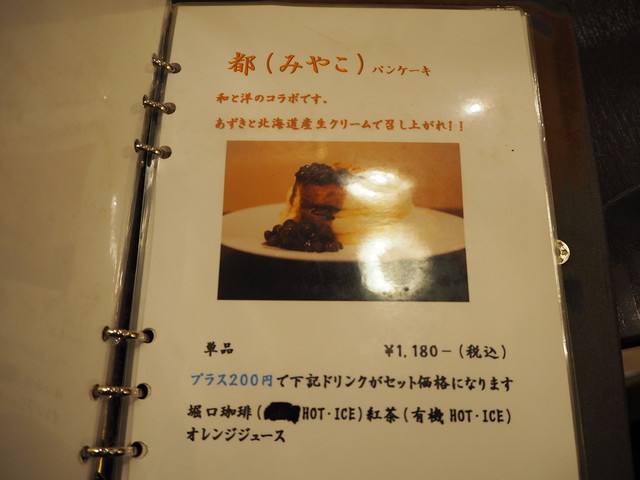 都(みやこ)パンケーキ
和と洋のコラボです、
あずきと北海道産生クリームで召し上がれ!!
単品 ¥1,180-(税込)
プラス200円で下記ドリンクがセット価格になります
堀口珈琲( HOT・ICE)紅茶(有機 HOT・ICE)
オレンジジュース